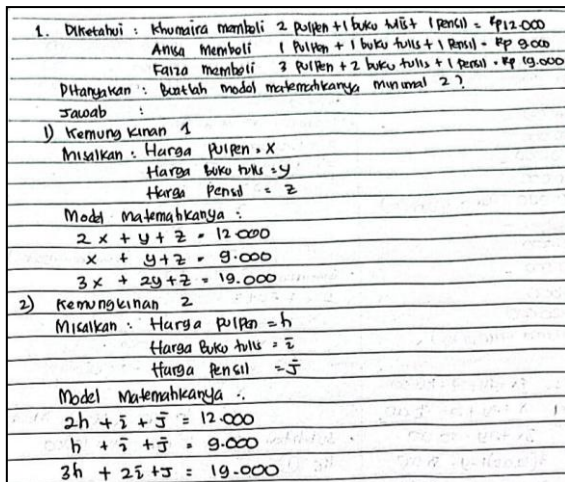 1. Diketahui : Khumaira membeli 2 pulpen + 1 buku tulis + 1 pensil = Rp 12.000
Anisa Membeli 1 Pulpen + 1 buku tulis + 1 Pensil = Rp 9.000
Faiza membeli 3 Pulpen + 2 buku tulis + 1 pensil = Rp 19.000
Ditanyakan : Buatlah model matematikanya minimal 2 ?
Jawab :
1) Kemungkinan 1
Misalkan : Harga Pulpen = x
Harga Buku tulis = y
Harga Pensil = z
Model Matematikanya :
2x + y + z = 12.000
x + y + z = 9.000
3x + 2y + z = 19.000
2) Kemungkinan 2
Misalkan : Harga Pulpen = h
Harga Buku tulis = i
Harga Pensil = j
Model Matematikanya :
2h + i + j = 12.000
h + i + j = 9.000
3h + 2i + j = 19.000